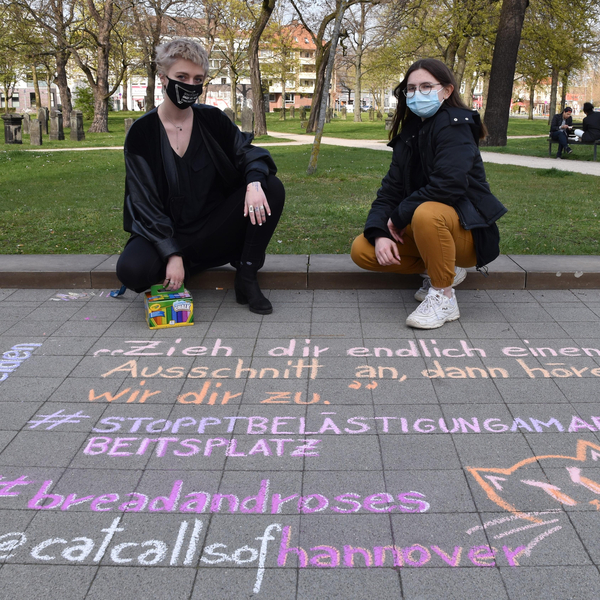 „Zieh dir endlich einen
Ausschnitt an, dann höre
wir dir zu."
#STOPPTBELÄSTIGUNGAMAR
BEITSPLATZ
#breadandroses
@catcallsofhannover